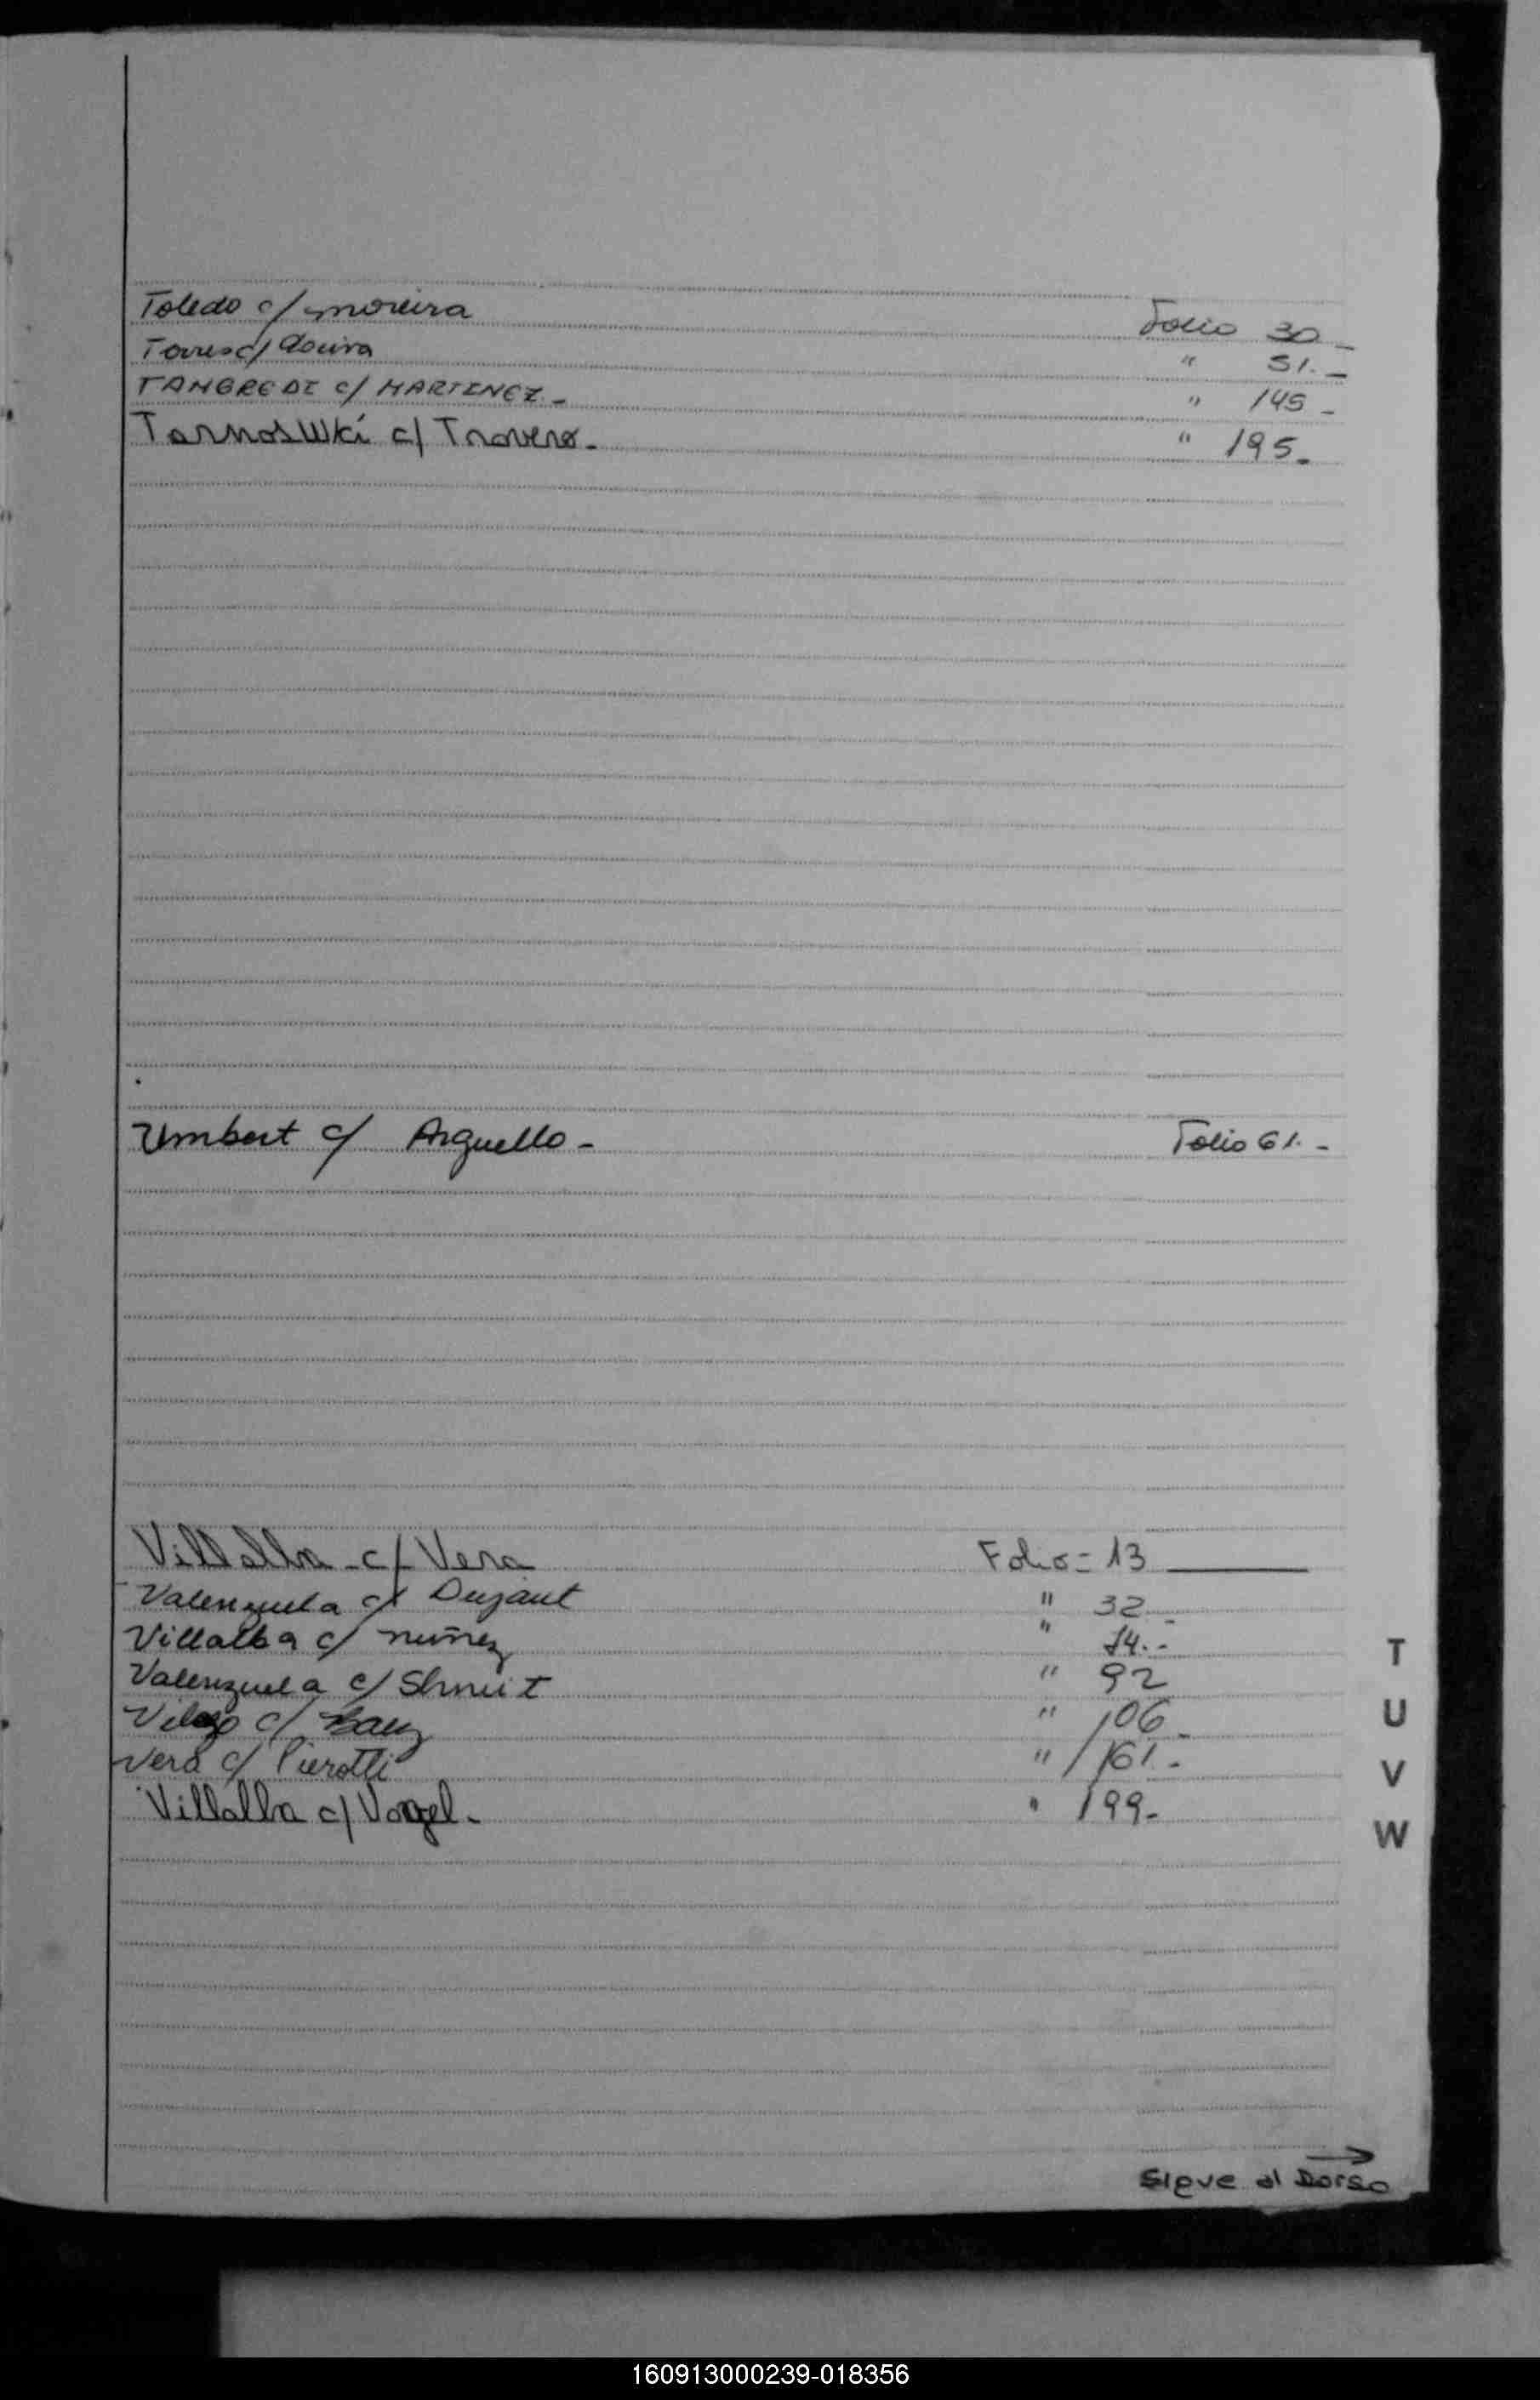 Toledo c/ Moreira Folio 30_
Torres c/ " 51._
TANGREDI c/ MARTINEZ._ " 145_
TarnosWki c/ Travero. " 195.
Umbert c/ Arguello - Folio 61.-
Villalba c/ Vera Folio = 13
Valenzuela c/ Duzaut " 32.-
Villalba c/ nuñez " 74.-
Valenzuela c/ Shmit " 92
c/ Baez " 106_
Vera c/ Pierotti " 161.-
T
Villalba c/ Vogel. " 199-
U
V
W
Sigue al Dorso
160913000239-018356